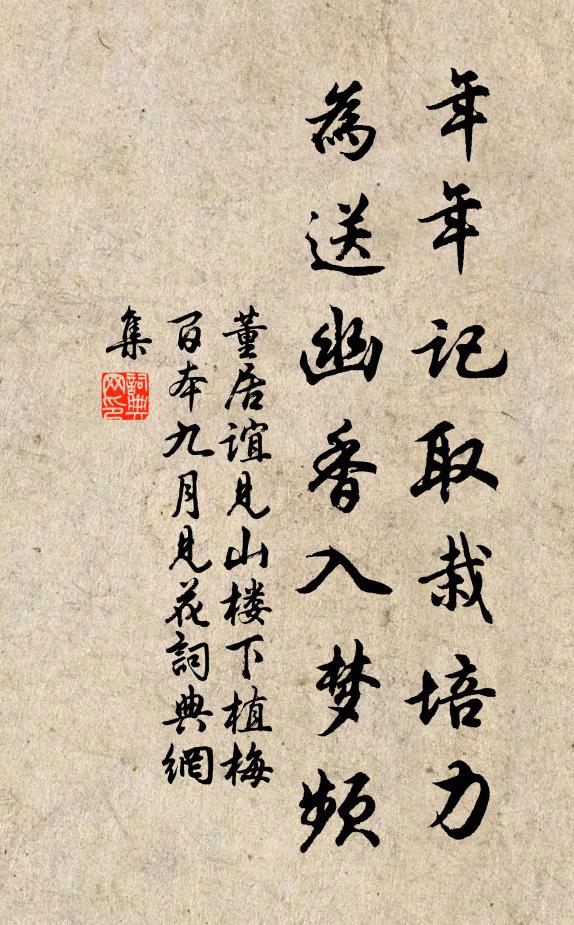 年年记取栽培力
為送幽香入梦频
董居谊见山楼下植梅
百本九月见花詞典網
集
詞典
网印